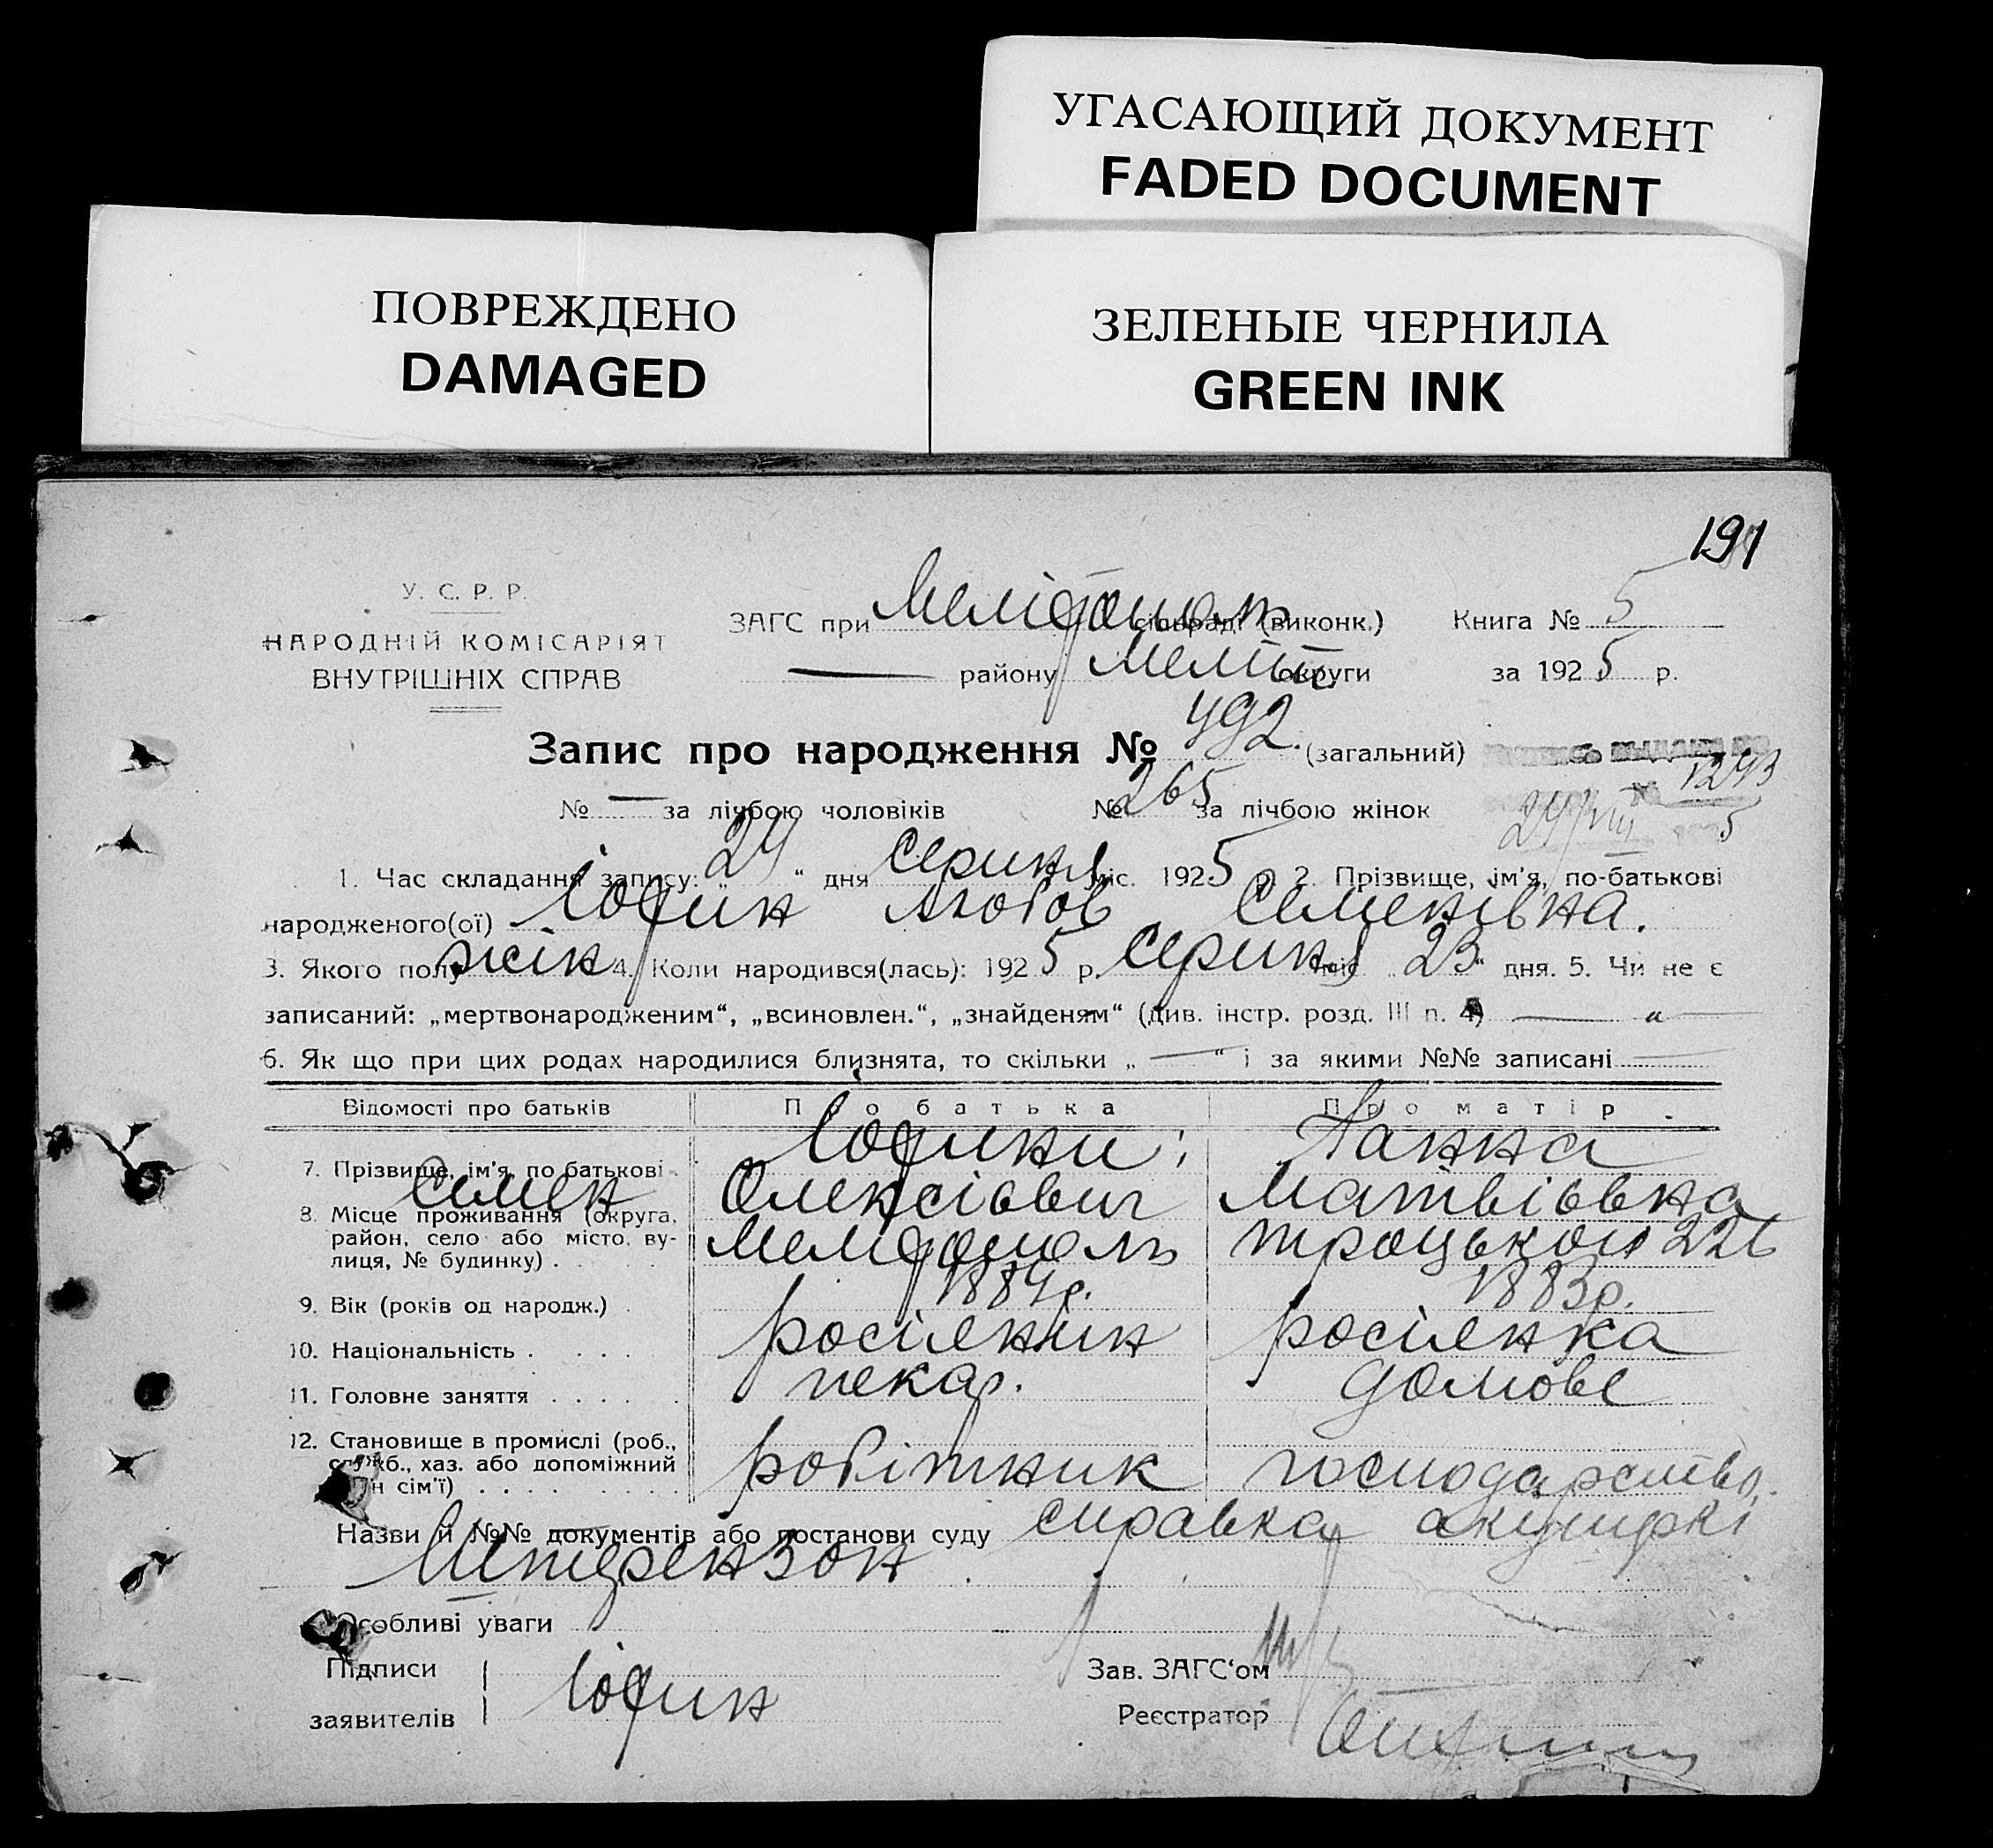 УГАСАЮЩИЙ ДОКУМЕНТ
FADED DOCUMENT
ПОВРЕЖДЕНО
DAMAGED
ЗЕЛЕНЫЕ ЧЕРНИЛА
GREEN INK
191
У. С. Р. Р.
НАРОДНІЙ КОМІСАРІЯТ
ВНУТРІШНІХ СПРАВ
ЗАГС при Мелітополь сільраді (виконк.) Книга № 5
— району Меліт округи за 1925 р.
Запис про народження № 492. (загальний)
№ — за лічбою чоловіків № 265 за лічбою жінок
1243
24/VIII 5
1. Час складання запису: „24“ дня серпня міс. 1925 р. 2. Прізвище, ім'я, по-батькові
народженого(ої) Іофин Любов Семенівна.
3. Якого полу жін 4. Коли народився(лась): 1925 р. серпня міс „23“ дня. 5. Чи не є
записаний: „мертвонародженим“, „всиновлен.“, „знайденям“ (див. інстр. розд. III п. 4) — „ —
6. Як що при цих родах народилися близнята, то скільки „—“ і за якими №№ записані —
Відомості про батьків Про батька Про матір
7. Прізвище, ім'я, по батькові Іофини: Ганна
Семен Олексієвич Матвієвна
8. Місце проживання (округа, район, село або місто, вулиця, № будинку) Мелітополь Троцького 226
9. Вік (років од народж.) 1884р. 1883р.
10. Національність росіянин росіянка
11. Головне заняття пекар. домове
12. Становище в промислі (роб., служб., хаз. або допоміжний член сім'ї) робітник господарство.
Назви й №№ документів або постанови суду справка акушерки
Штерензон
Особливі уваги
Підписи
заявителів Іофин
Зав. ЗАГС'ом
Реєстратор